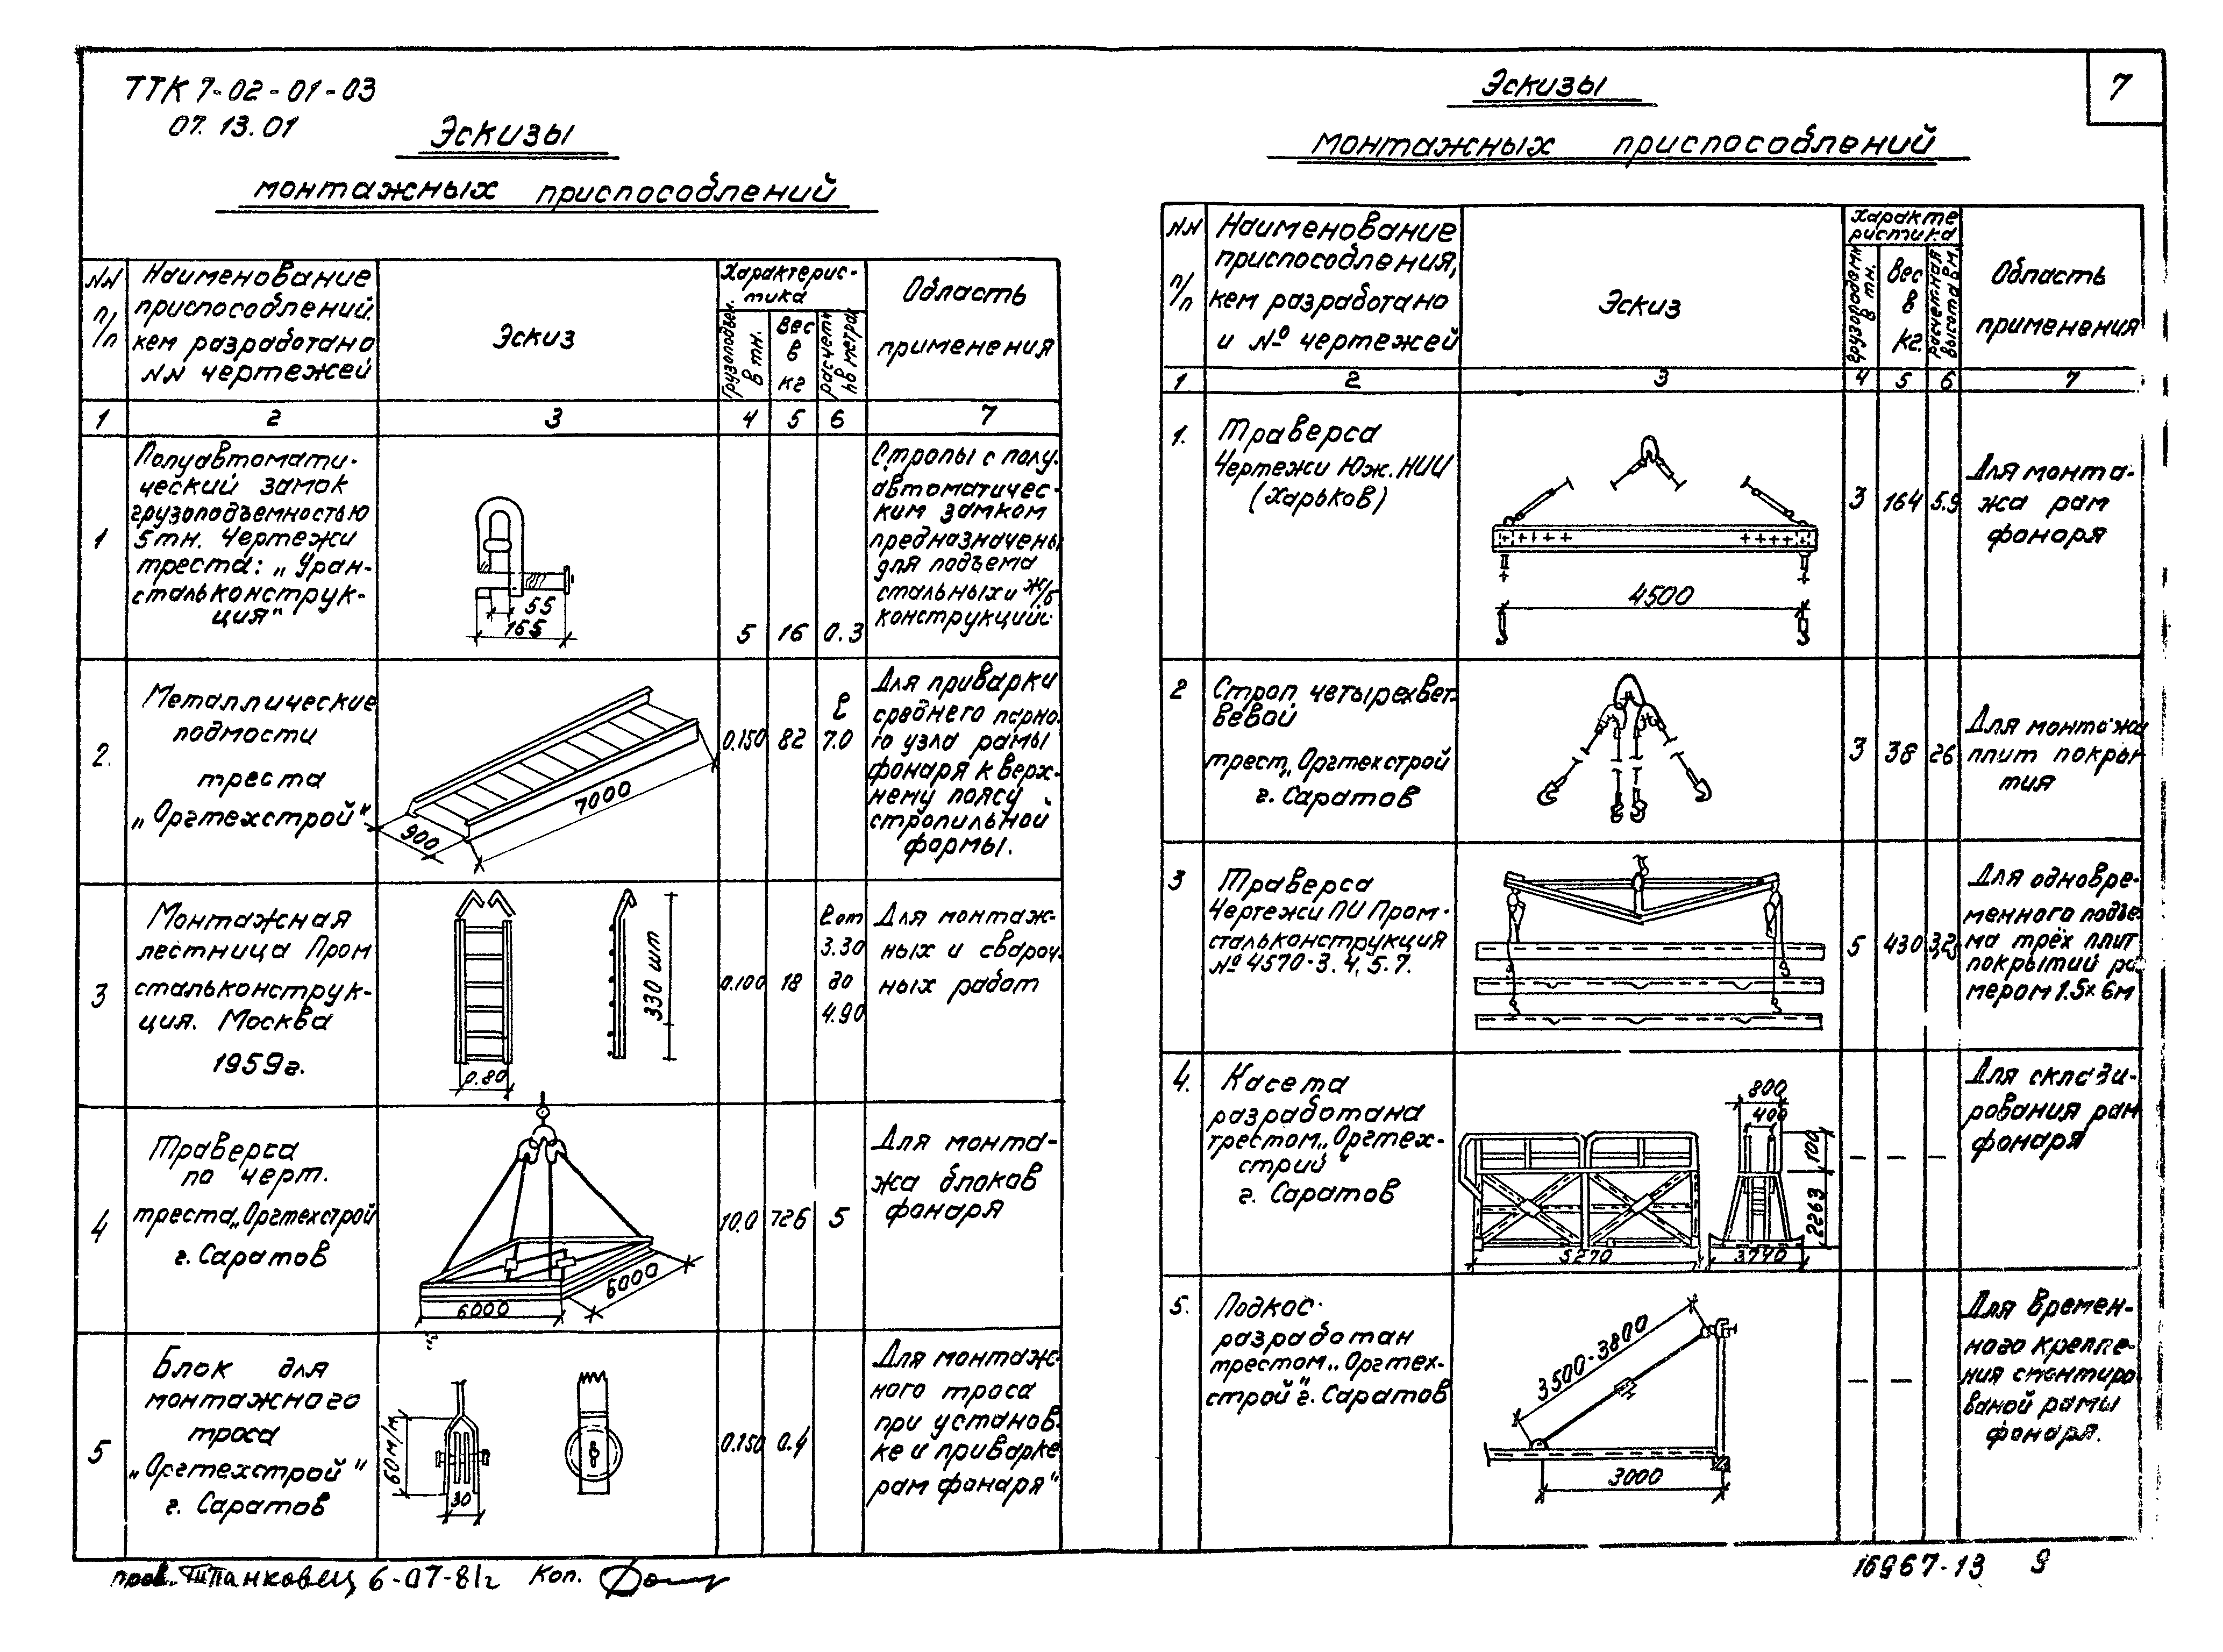 ТТК 7-02-01-03
07.13.01
Эскизы
монтажных приспособлений
NN п/п
Наименование
приспособлений.
кем разработано
NN чертежей
Эскиз
Характерис-
тика
Грузоподъем.
в тн.
Вес
в
кг
расчетн
h в метрах
Область
применения
1 2 3 4 5 6 7
1
Полуавтомати-
ческий замок
грузоподъемностью
5тн. Чертежи
треста: „Уран-
стальконструк-
ция"
55
165
5 16 0.3
Стропы с полу-
автоматичес-
ким замком
предназначены
для подъема
стальных и ж/б
конструкций.
2.
Металлические
подмости
треста
„Оргтехстрой"
900
7000
0.150 82
ℓ
7.0
Для приварки
среднего парно-
го узла рамы
фонаря к верх-
нему поясу
стропильной
фармы.
3
Монтажная
лестница Пром
стальконструк-
ция. Москва
1959г.
0.80
330 шт
0.100 18
ℓ от
3.30
до
4.90
Для монтаж-
ных и свароч-
ных работ
4
Траверса
по черт.
треста „Оргтехстрой
г. Саратов
6000
6000
10.0 726 5
Для монта-
жа блоков
фонаря
5
Блок для
монтажного
троса
„Оргтехстрой"
г. Саратов
60 м/м
30
0.150 0.4
Для монтаж-
ного троса
при установ-
ке и приварке
рам фонаря"
пров. 6-07-81г Коп.
7
Эскизы
монтажных приспособлений
NN
п/п
Наименование
приспособления,
кем разработано
и № чертежей
Эскиз
Характе
ристика
грузоподъемн
в тн.
Вес
в
кг.
расчетная
высота в м.
Область
применения
1 2 3 4 5 6 7
1.
Траверса
Чертежи Юж.НИИ
(Харьков)
4500
3 164 5.9
Для монта-
жа рам
фонаря
2
Строп четырехвет-
вевой
трест „Оргтехстрой
г. Саратов
3 38 26
Для монтажа
плит покры-
тия
3
Траверса
Чертежи ПИ Пром-
стальконструкция
№ 4570-3.4,5.7.
5 430
Для одновре-
менного подъе-
ма трёх плит
покрытий ра
мером 1.5х6м
4.
Касета
разработана
трестом „Оргтех-
стрий"
г. Саратов
800
400
100
2263
5270
3740
— — —
Для склади-
рования рам
фонаря
5.
Подкос
разработан
трестом „Оргтех-
строй" г. Саратов
3500-3800
3000
— —
Для времен-
ного крепле-
ния смонтиро-
ваной рамы
фонаря.
16967-13 9